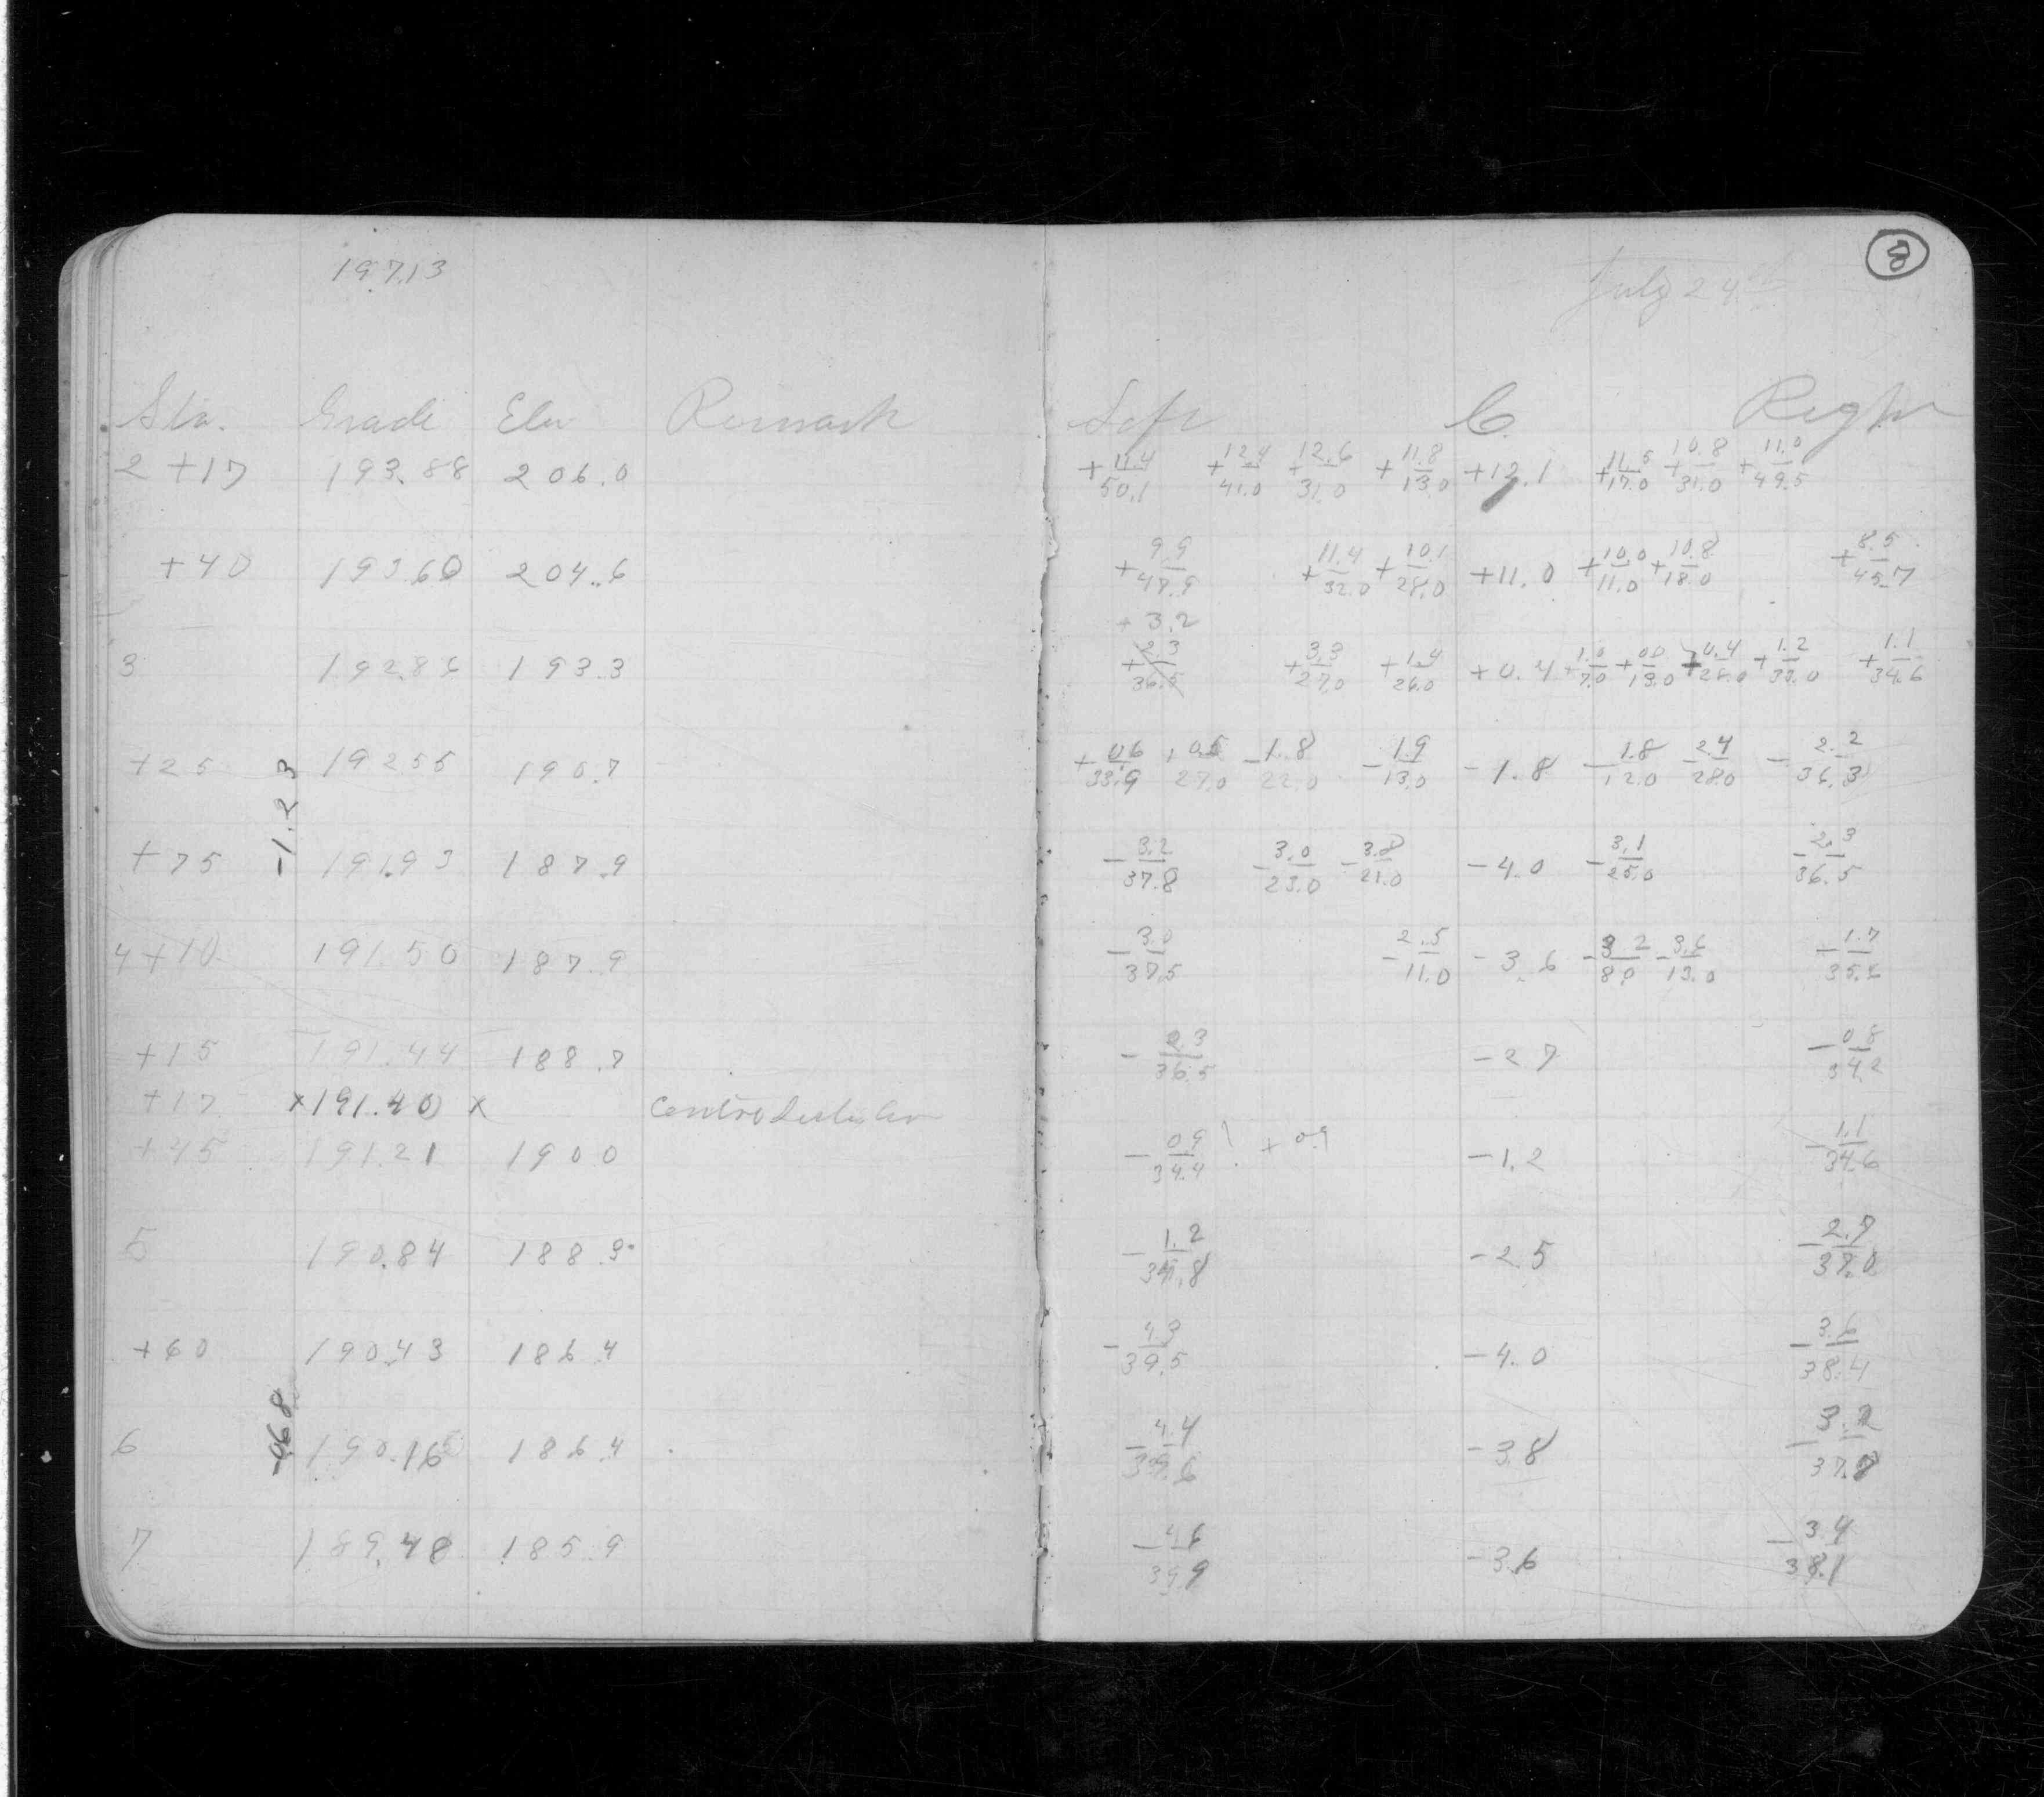 197.13
8
July 24th
Sta. Grade Elev Remark Left C. Right
2 +17 193.88 206.0 +11.4/50.1 +12.4/41.0 +12.6/31.0 +11.8/13.0 +12.1 +11.5/17.0 +10.8/31.0 +11.0/49.5
+40 193.60 204.6 +9.9/47.9 +11.4/32.0 +10.1/28.0 +11.0 +10.0/11.0 +10.8/18.0 +8.5/45.7
+3.2
3 192.86 193.3 +2.3/36.5 +3.3/27.0 +1.4/26.0 +0.4 +1.0/7.0 +0.0/13.0 +0.4/28.0 +1.2/33.0 +1.1/34.6
+25 192.55 190.7 +0.6/33.9 +0.5/27.0 -1.8/22.0 -1.9/13.0 -1.8 -1.8/12.0 -2.4/28.0 -2.2/36.3
-1.23
+75 191.93 187.9 -3.2/37.8 -3.0/23.0 -3.8/21.0 -4.0 -3.1/25.0 -2.3/36.5
4+10 191.50 187.9 -3.0/37.5 -2.5/11.0 -3.6 -3.2/8.0 -3.6/13.0 -1.7/35.6
+15 191.44 188.7 -2.3/36.5 -2.7 -0.8/34.2
+17 x191.40 x
+45 191.21 190.0 -0.9/34.4 +0.9 -1.2 -1.1/34.6
5 190.84 188.3 -1.2/34.8 -2.5 -2.7/37.0
+60 190.43 186.4 -4.3/39.5 -4.0 -3.6/38.4
-0.68
6 190.16 186.4 -4.4/39.6 -3.8 -3.2/37.8
7 189.48 185.9 -4.6/39.9 -3.6 -3.4/38.1